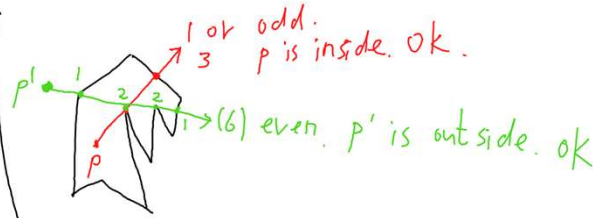 1 or odd.
3 p is inside. ok.
p'
1
2
2
1
(6) even. p' is outside. ok
p